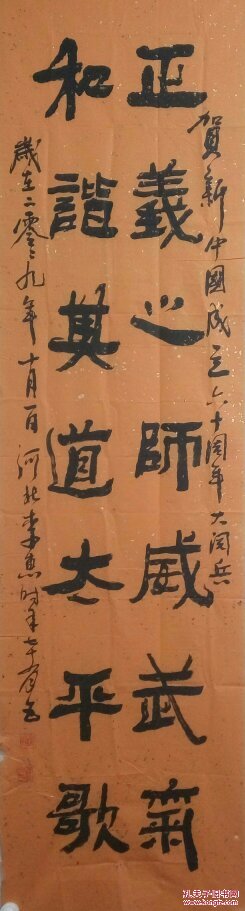 賀新中國成立六十周年大閱兵
正義之師威武氣
和諧其道太平歌
歲在二零零九年十月一日河北李惠时年七十有